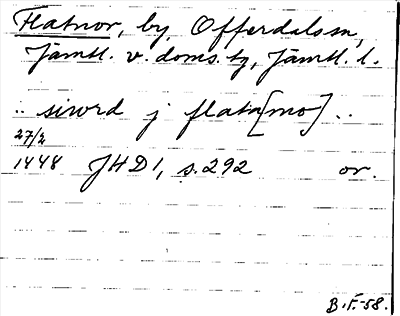 Flatnor, by, Offerdals sn,
Jämtl. v. doms. tg, Jämtl. l.
.. siwrd j flatn[mo] ..
27/2
1448 JHD 1, s. 292 or.
B.F.-58.